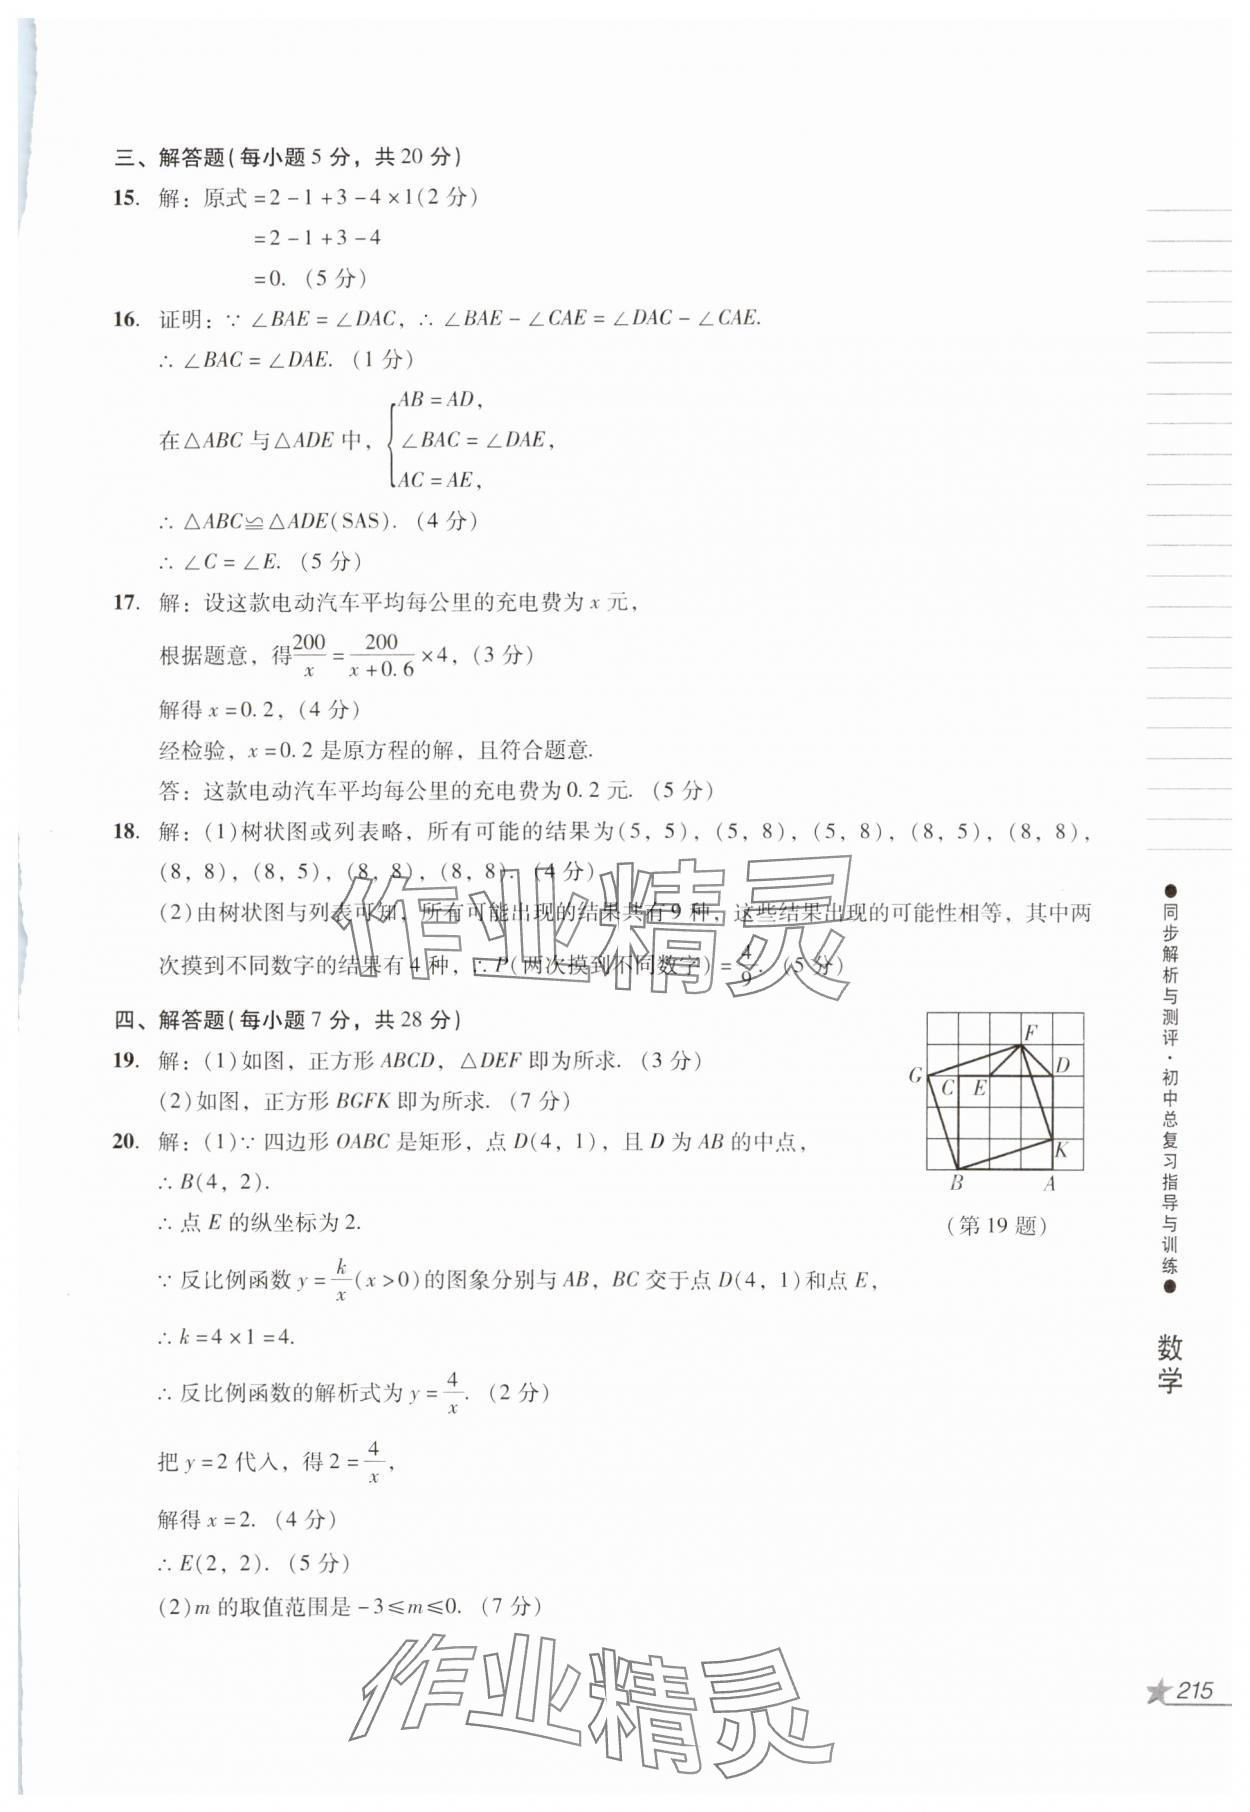 三、解答题(每小题5分，共20分)
15. 解：原式=2-1+3-4×1(2分)
=2-1+3-4
=0. (5分)
16. 证明：∵ ∠BAE=∠DAC，∴ ∠BAE-∠CAE=∠DAC-∠CAE.
∴ ∠BAC=∠DAE. (1分)
在△ABC与△ADE中，{AB=AD，
∠BAC=∠DAE，
AC=AE，
∴ △ABC≌△ADE(SAS). (4分)
∴ ∠C=∠E. (5分)
17. 解：设这款电动汽车平均每公里的充电费为x元，
根据题意，得200/x=200/(x+0.6)×4，(3分)
解得x=0.2，(4分)
经检验，x=0.2是原方程的解，且符合题意.
答：这款电动汽车平均每公里的充电费为0.2元. (5分)
18. 解：(1)树状图或列表略，所有可能的结果为(5，5)，(5，8)，(5，8)，(8，5)，(8，8)，
(8，8)，(8，5)，(8，8)，(8，8). (4分)
(2)由树状图与列表可知，所有可能出现的结果共有9种，这些结果出现的可能性相等，其中两
次摸到不同数字的结果有4种，∴ P(两次摸到不同数字)=4/9. (5分)
四、解答题(每小题7分，共28分)
19. 解：(1)如图，正方形ABCD，△DEF即为所求. (3分)
(2)如图，正方形BGFK即为所求. (7分)
F
G C E D
K
B A
(第19题)
20. 解：(1)∵ 四边形OABC是矩形，点D(4，1)，且D为AB的中点，
∴ B(4，2).
∴ 点E的纵坐标为2.
∵ 反比例函数y=k/x(x>0)的图象分别与AB，BC交于点D(4，1)和点E，
∴ k=4×1=4.
∴ 反比例函数的解析式为y=4/x. (2分)
把y=2代入，得2=4/x，
解得x=2. (4分)
∴ E(2，2). (5分)
(2)m的取值范围是-3≤m≤0. (7分)
作业精灵
作业精灵
同步解析与测评·初中总复习指导与训练
数学
215